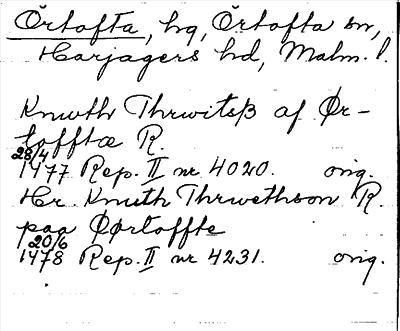 Örtofta, hg, Örtofta sn,
Harjagers hd, Malm. l.
Knwth Thrwitsβ af Ør-
tofftæ R.
28/4
1477 Rep. II nr 4020. orig.
Hr. Knuth Thrwethson R.
paa Øørtoffte
20/6
1478 Rep. II nr 4231. orig.